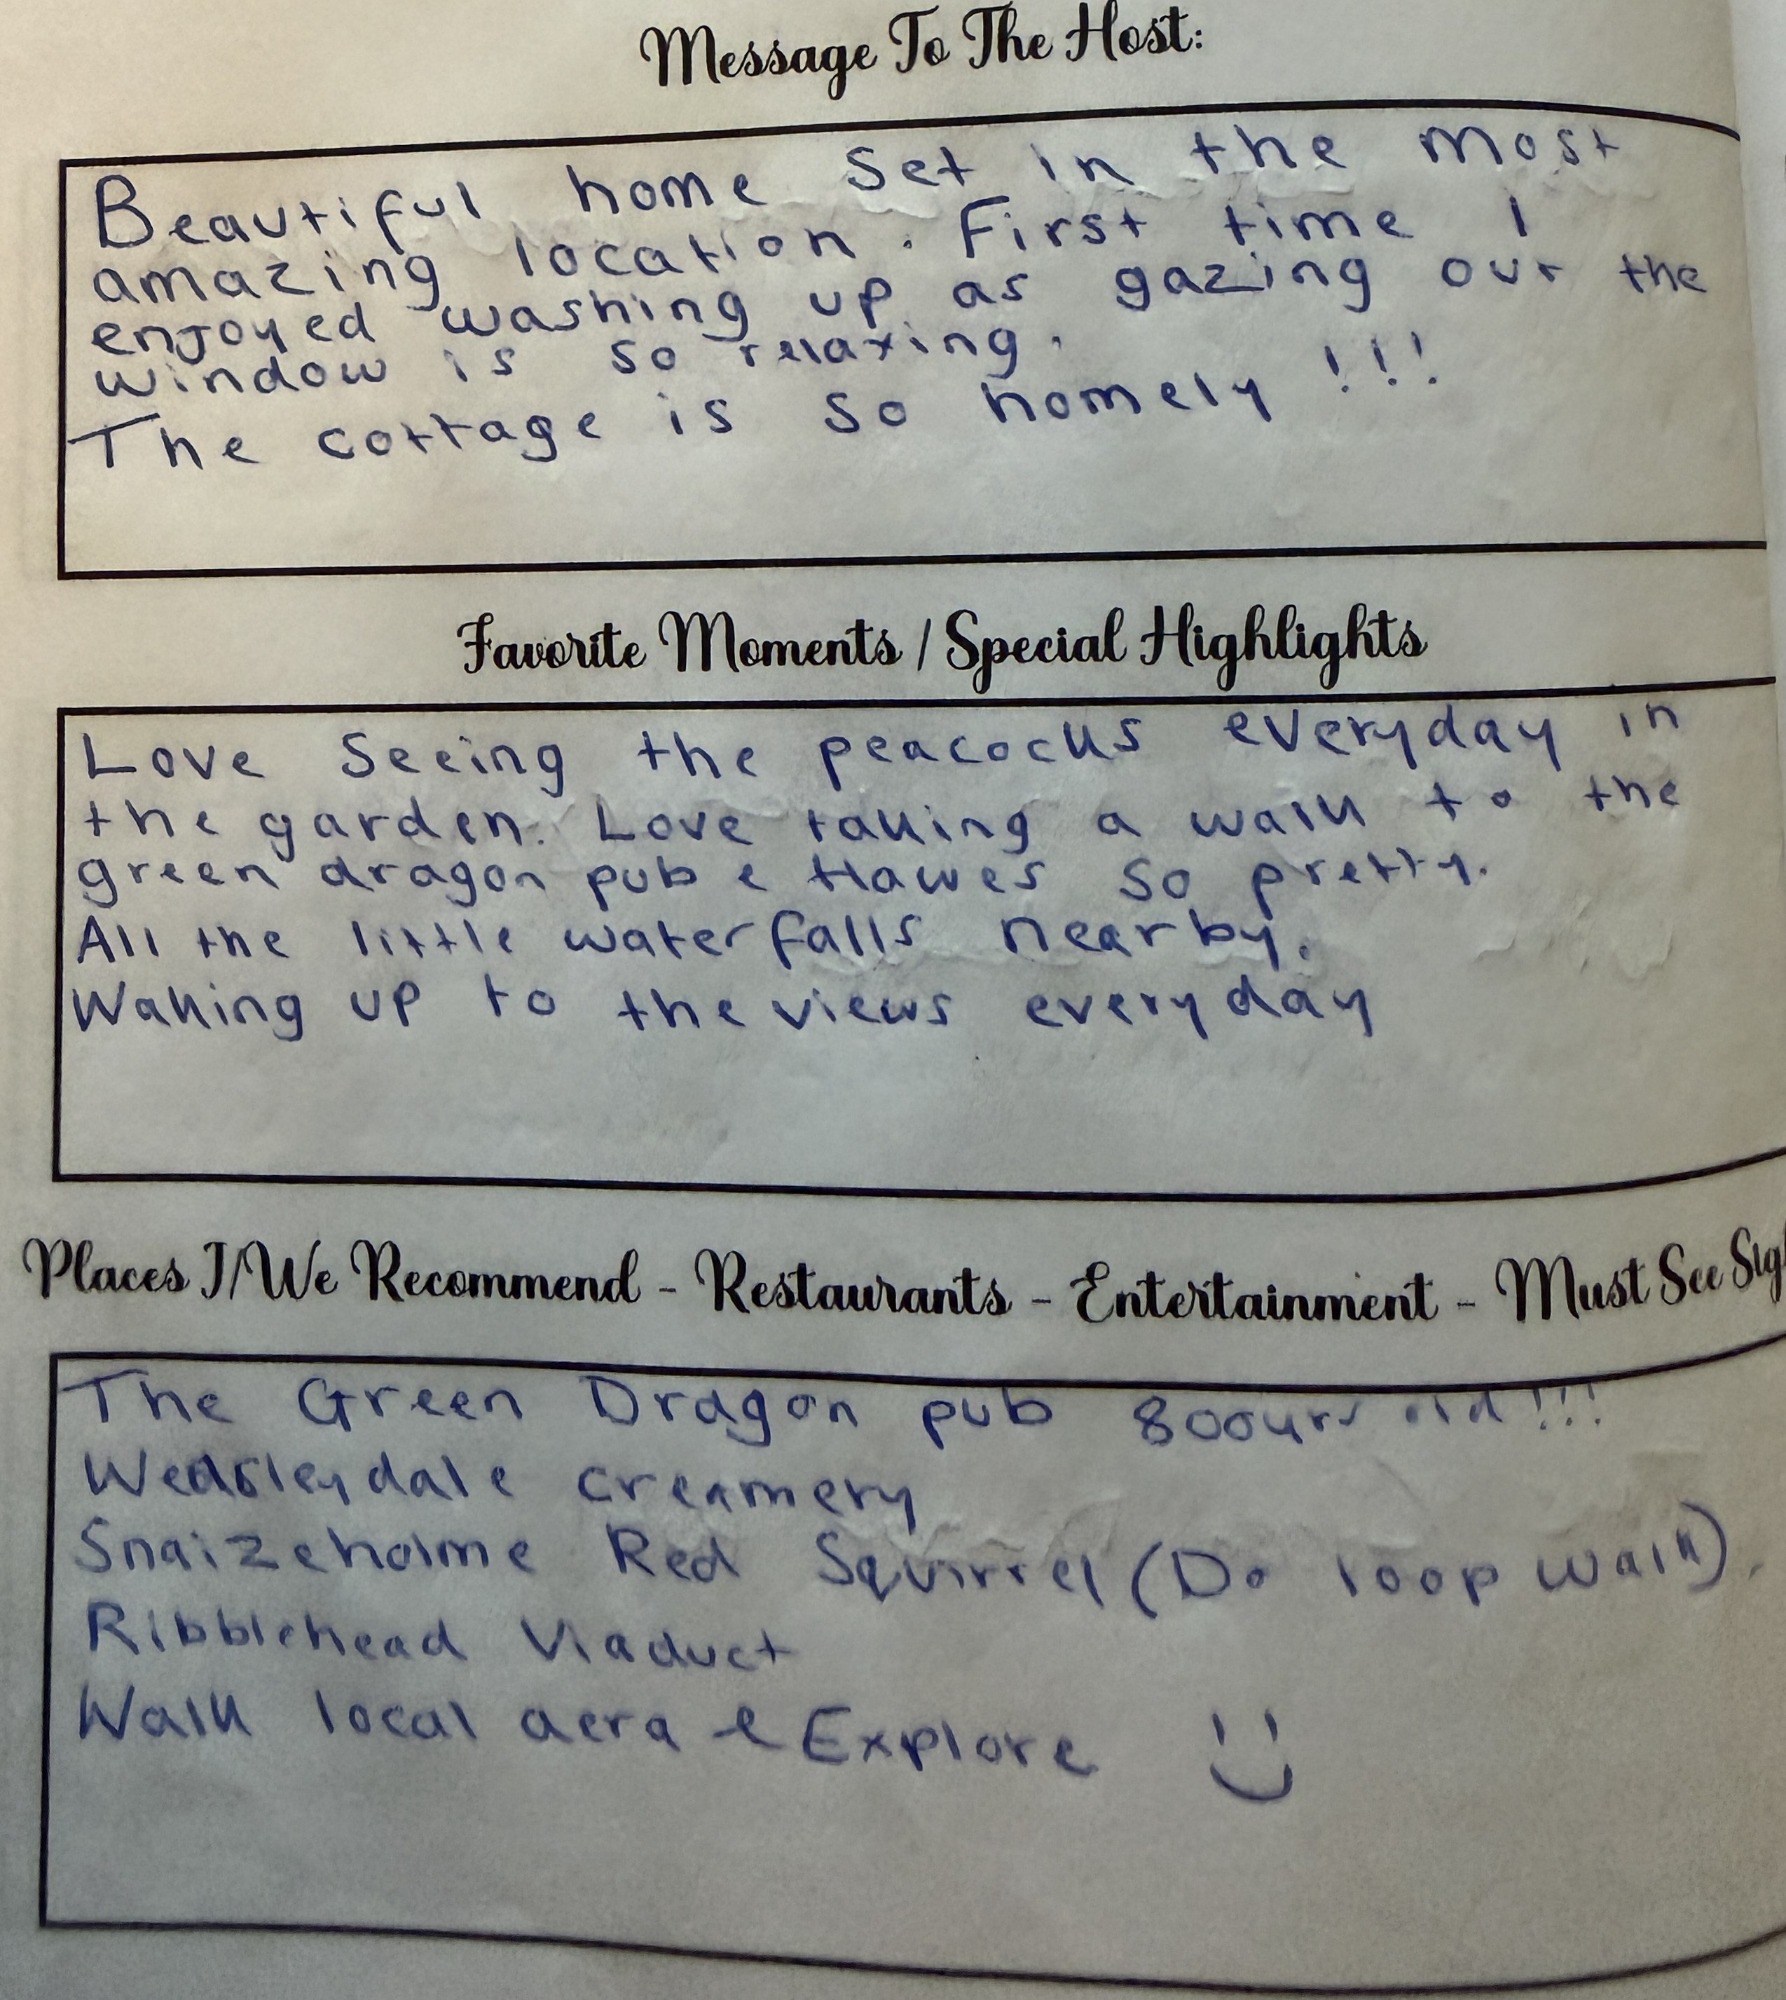 Message To The Host:
Beautiful home Set in the most
amazing location. First time I
enjoyed washing up as gazing out the
window is so relaxing.
The cottage is so homely !!!
Favorite Moments / Special Highlights
Love Seeing the peacocks everyday in
the garden. Love taking a walk to the
green dragon pub & Hawes so pretty.
All the little waterfalls nearby.
Waking up to the views everyday
Places I/We Recommend - Restaurants - Entertainment - Must See Sig
The Green Dragon pub 800yrs old!!!
Wedsleydale creamery
Snaizeholme Red Squirrel (Do loop walk).
Ribblehead Viaduct
Walk local aera & Explore